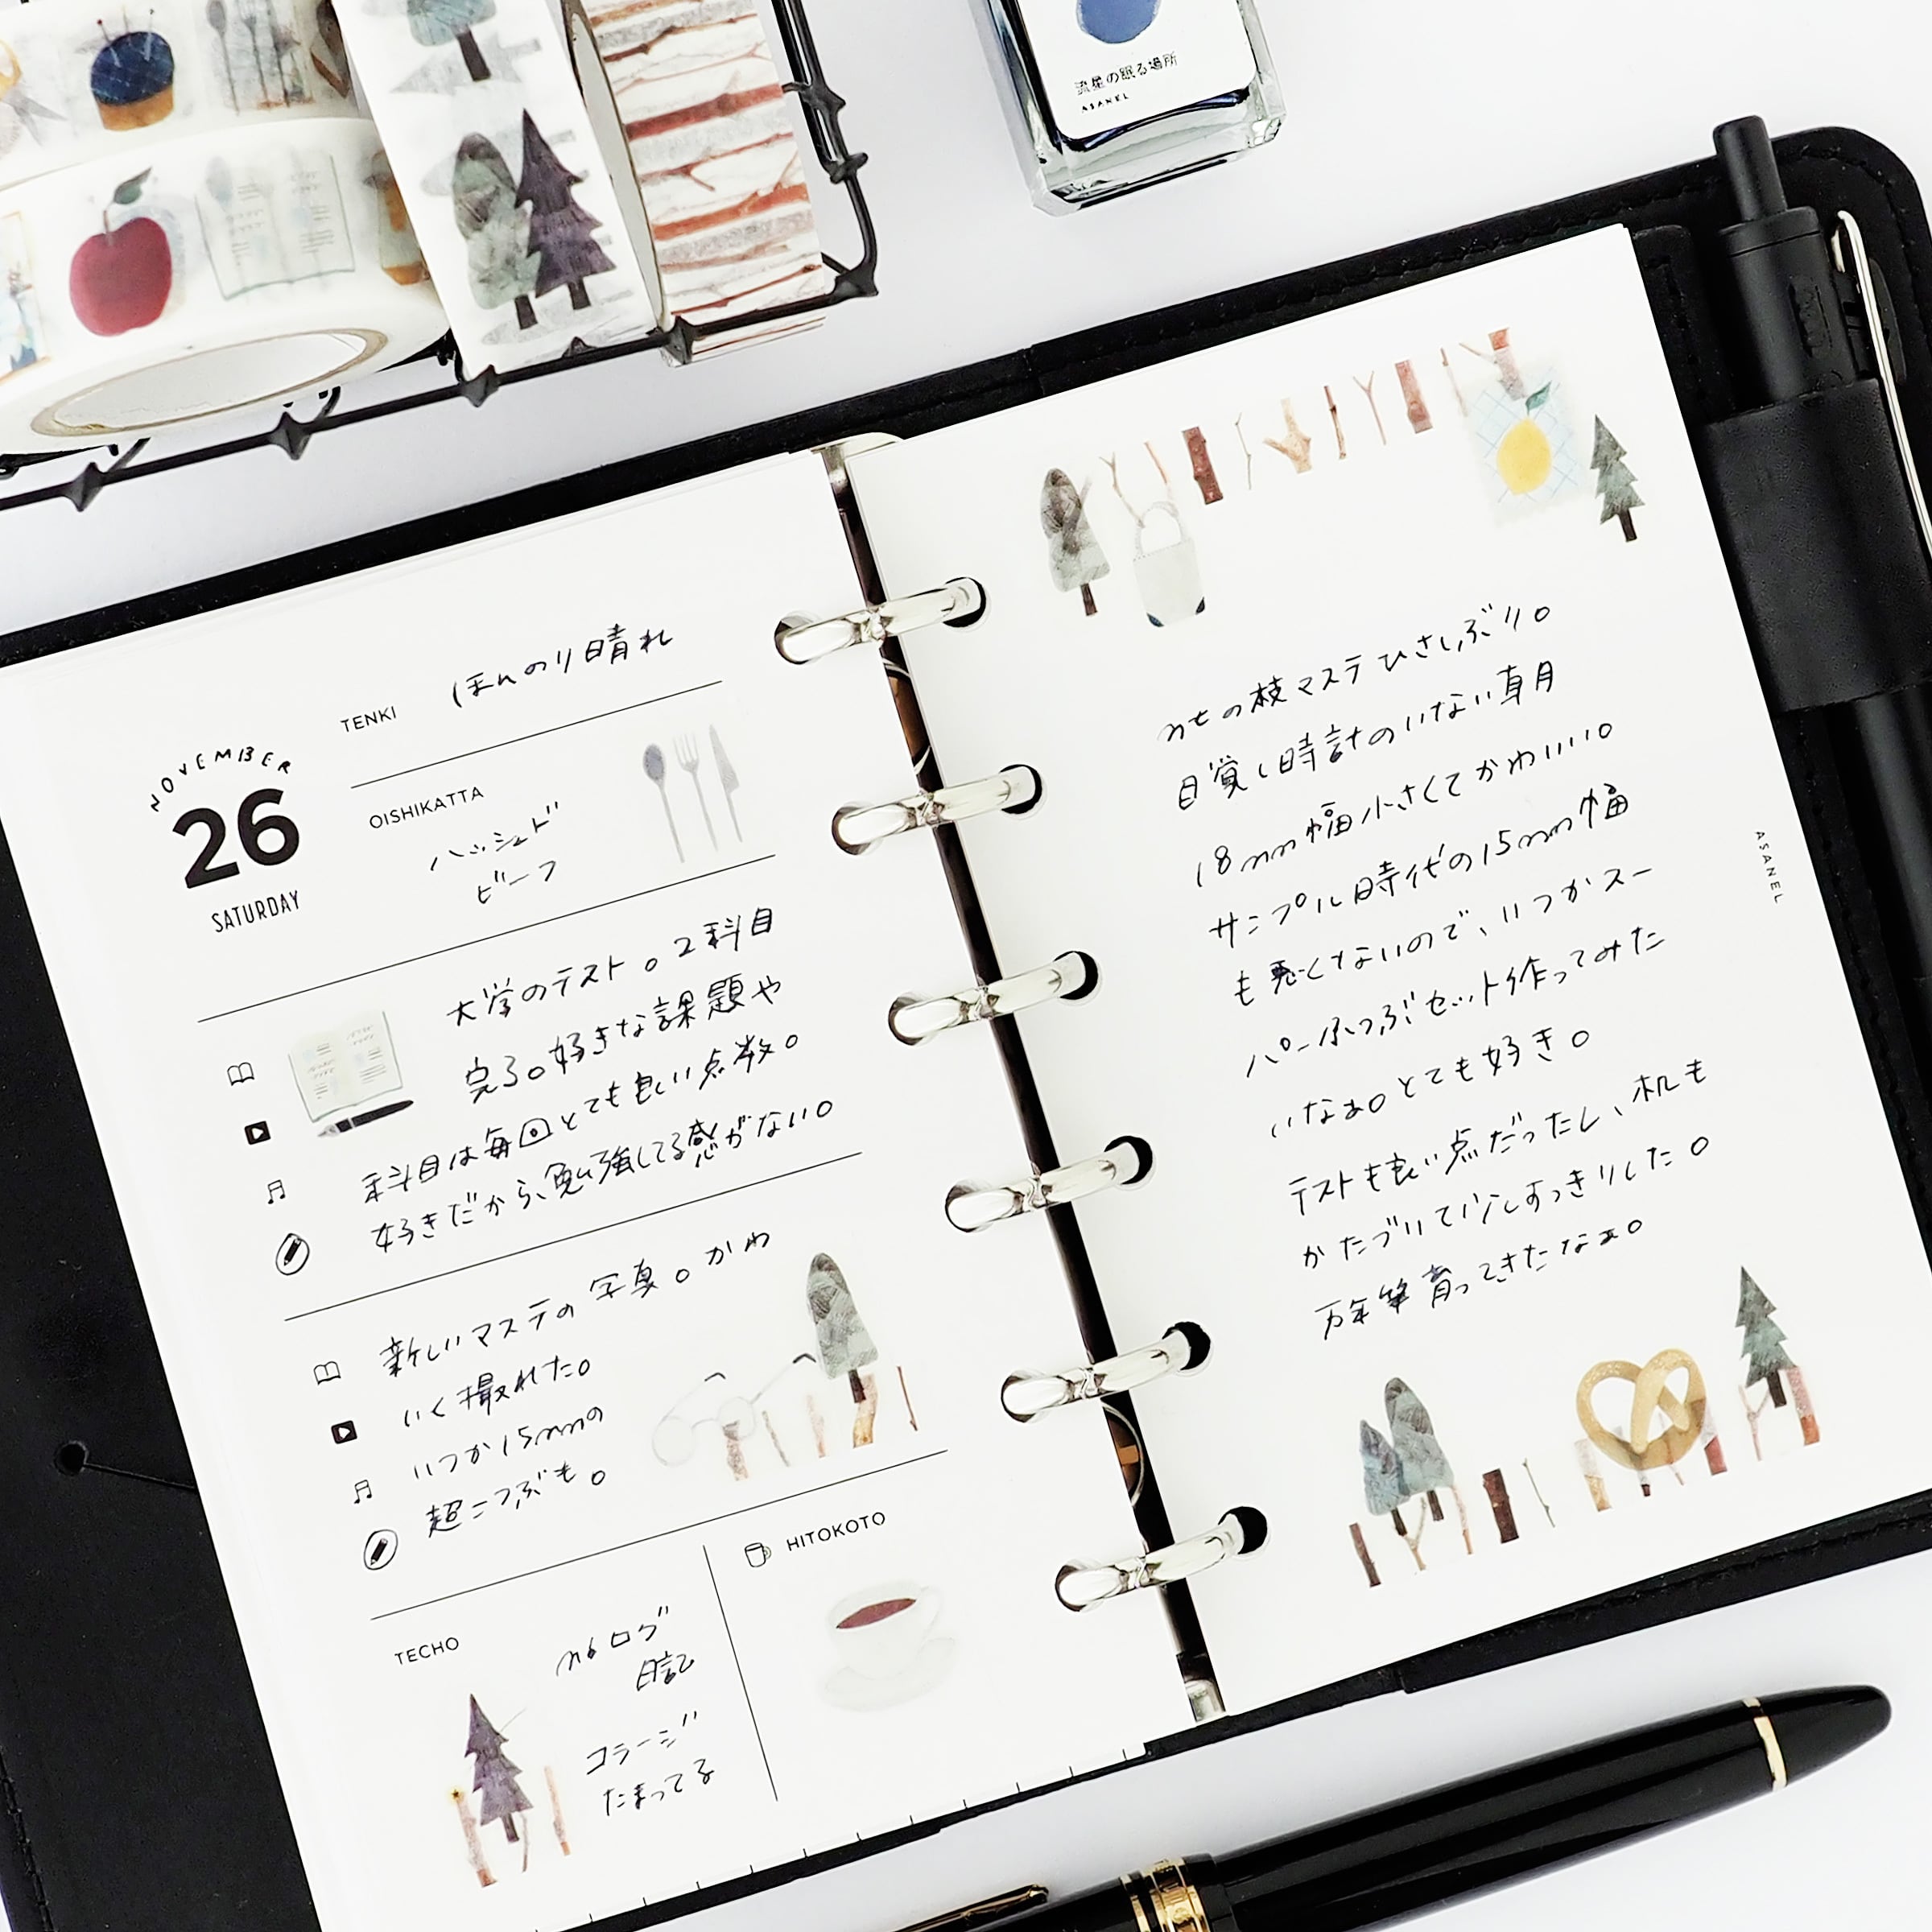 流星の眠る場所
ASANEL
TENKI
ほんのり晴れ
NOVEMBER
26
SATURDAY
OISHIKATTA
ハッシュド
ビーフ
大学のテスト。2科目
完了。好きな課題や
科目は毎回とても良い点数。
好きだから、勉強してる感がない。
新しいマステの写真。かわ
いく撮れた。
いつか15mmの
超こつぶも。
TECHO
m6ログ
日記
コラージュ
たまってる
HITOKOTO
mtの枝マステひさしぶり。
目覚し時計のいない草月
18mm幅小さくてかわいい。
サンプル時代の15mm幅
も悪くないので、いつかスー
パーこつぶセット作ってみた
いなぁ。とても好き。
テストも良い点だったし、机も
かたづいて少しすっきりした。
万年筆育ってきたなぁ。
ASANEL